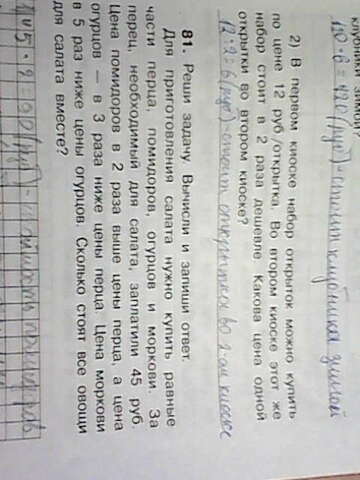 зимой
120 · 6 = 720 (руб) - стоит клубника зимой
2) В первом киоске набор открыток можно купить
по цене 12 руб./открытка. Во втором киоске этот же
набор стоит в 2 раза дешевле. Какова цена одной
открытки во втором киоске?
12:2=6(руб)-стоит открытка во 2-ом киоске
81. Реши задачу. Вычисли и запиши ответ.
Для приготовления салата нужно купить равные
части перца, помидоров, огурцов и моркови. За
перец, необходимый для салата, заплатили 45 руб.
Цена помидоров в 2 раза выше цены перца, а цена
огурцов — в 3 раза ниже цены перца. Цена моркови
в 5 раз ниже цены огурцов. Сколько стоят все овощи
для салата вместе?
1) 45 · 2 = 90 (руб) - помидоров